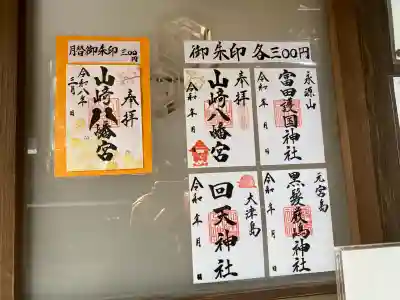 月替御朱印 三〇〇円
奉拝
山﨑八幡宮
令和八年
三月 日
御朱印 各三〇〇円
奉拝
山﨑八幡宮
令和 年 月 日
永源山
富田護国神社
令和 年 月 日
大津島
回天神社
令和 年 月 日
元宮島
黒髪厳嶋神社
令和 年 月 日